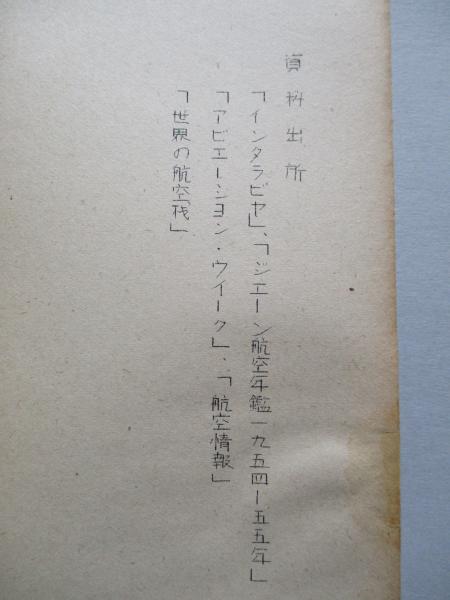 資料出所
「インタラビヤ」、「ジエーン航空年鑑一九五四ー五五年」
「アビエーシヨン・ウイーク」、「航空情報」
「世界の航空機」